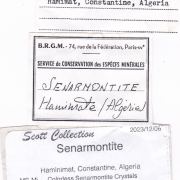 Hamimat, Constantine, Algeria
B.R.G.M. - 74, rue de la Fédération, Paris-15e
SERVICE de CONSERVATION des ESPÈCES MINÉRALES
SENARMONTITE
Haminate / Algérie
2023/12/06
Scott Collection
Senarmontite
Haminimat, Constantine, Algeria
Colorless Senarmontite Crystals